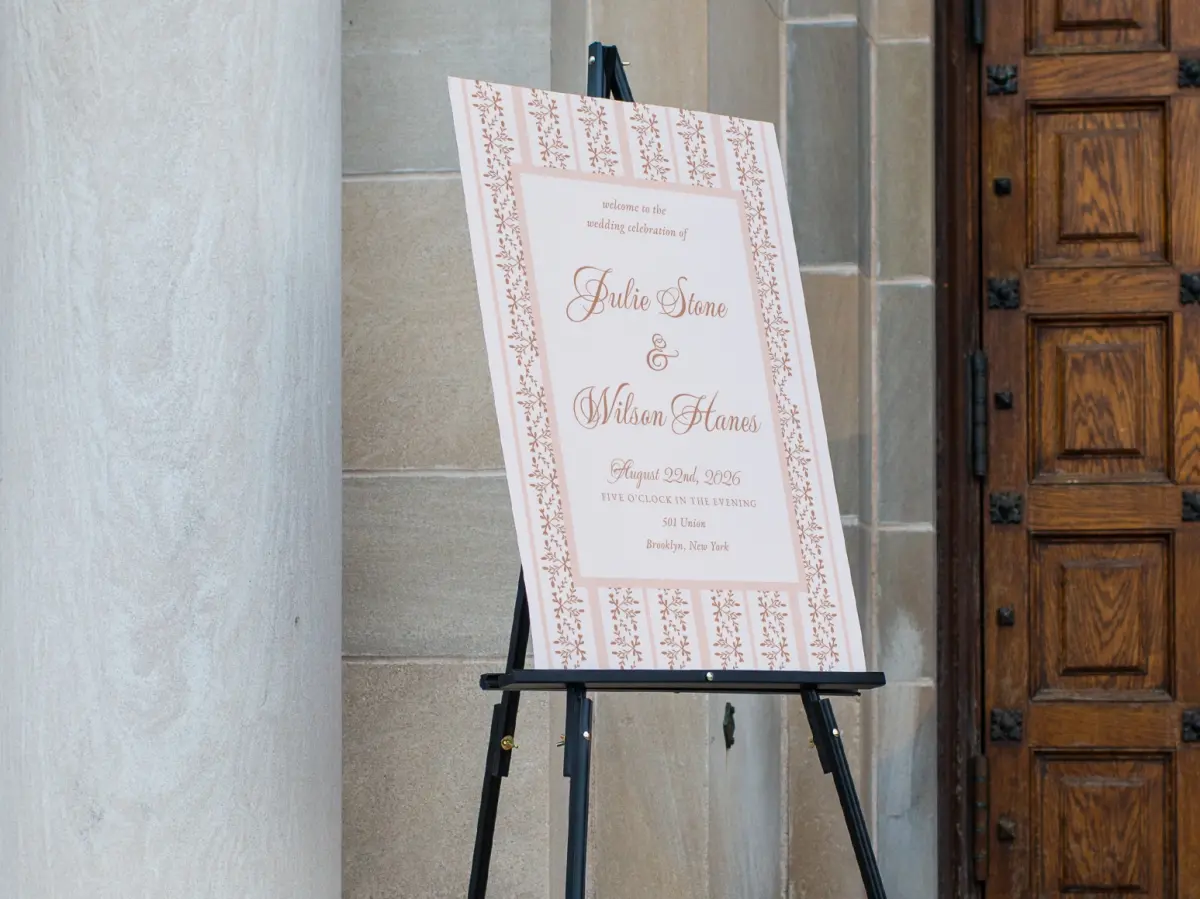 welcome to the
wedding celebration of
Julie Stone
&
Wilson Hanes
August 22nd, 2026
FIVE O'CLOCK IN THE EVENING
501 Union
Brooklyn, New York